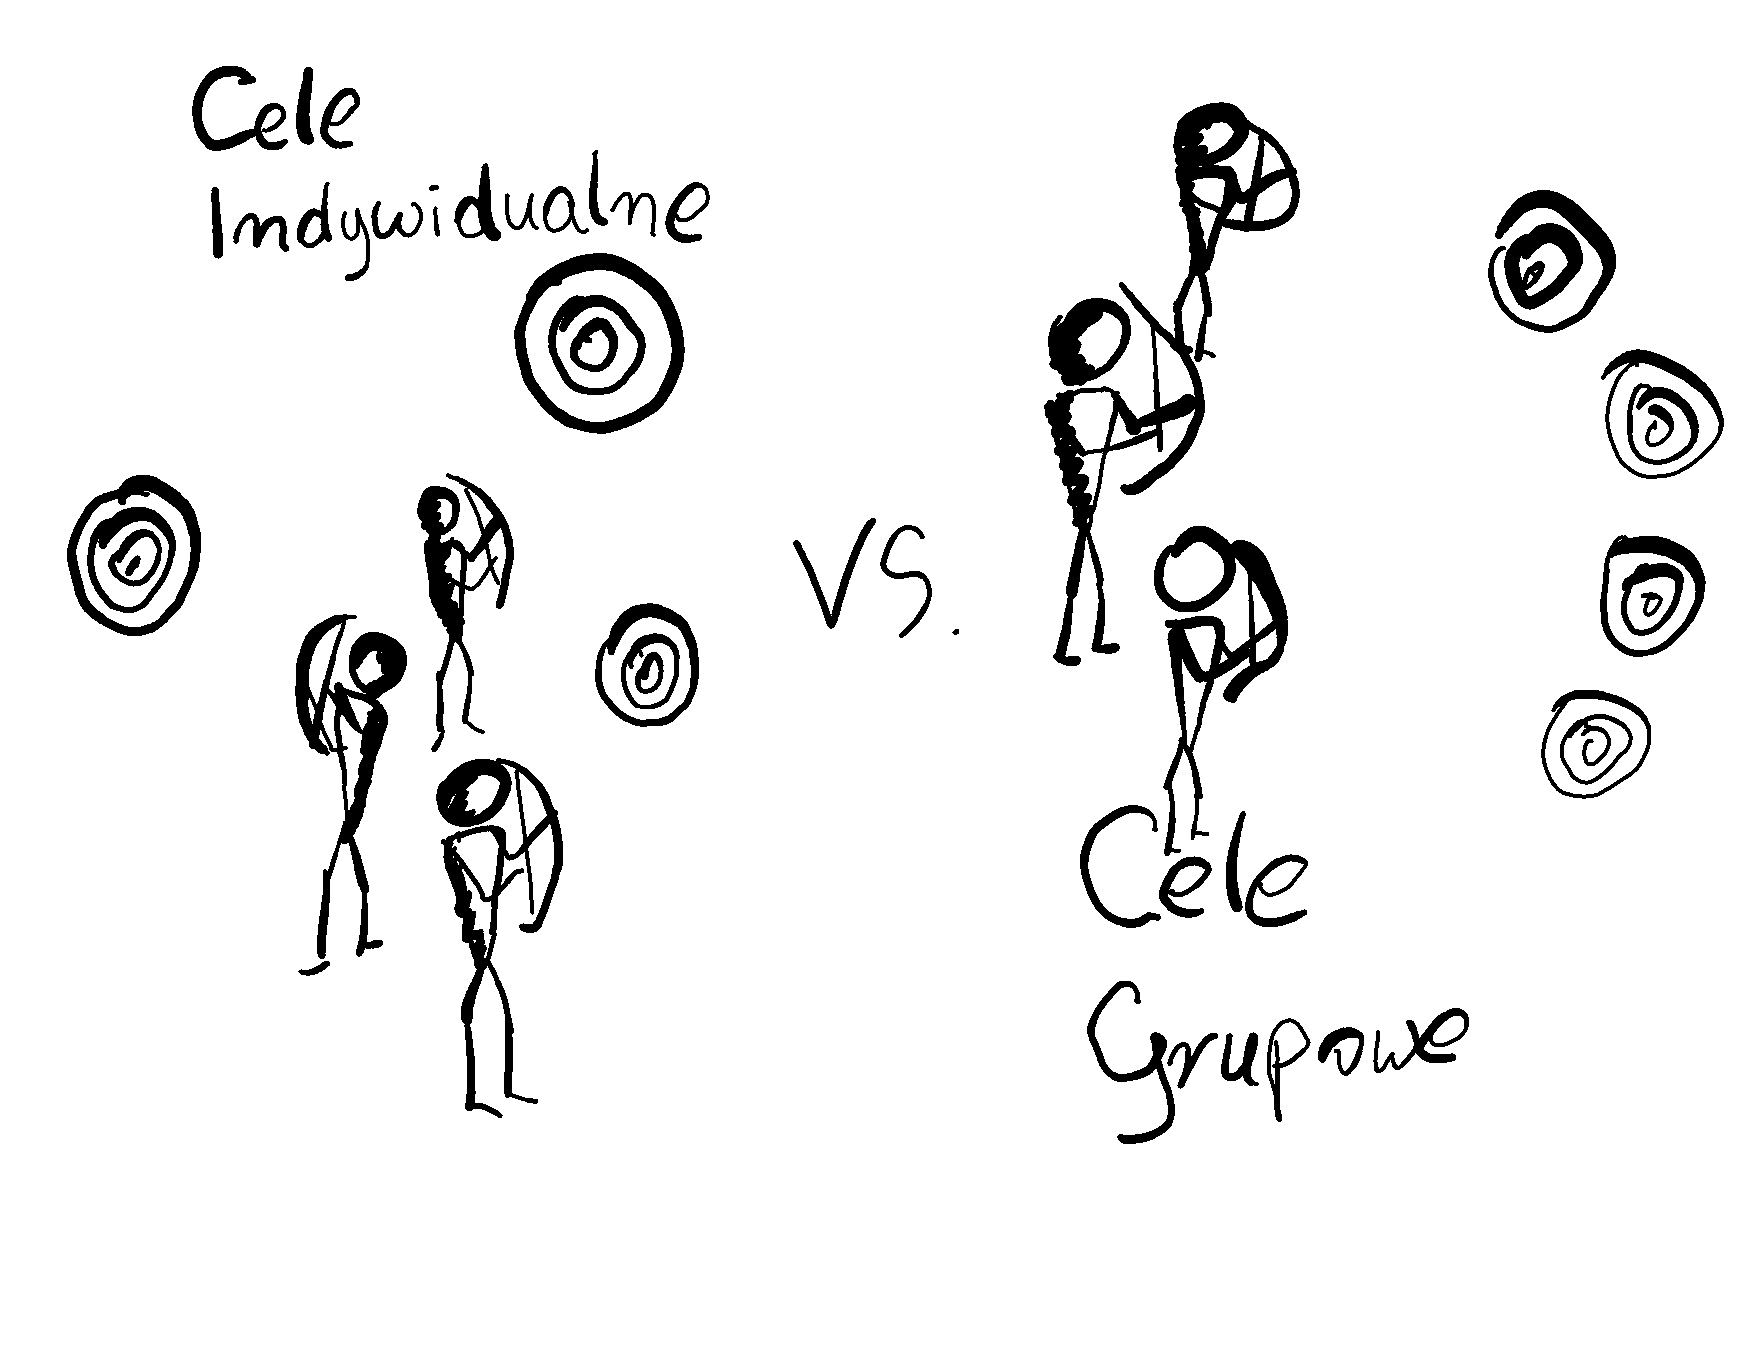 Cele
Indywidualne
vs.
Cele
Grupowe